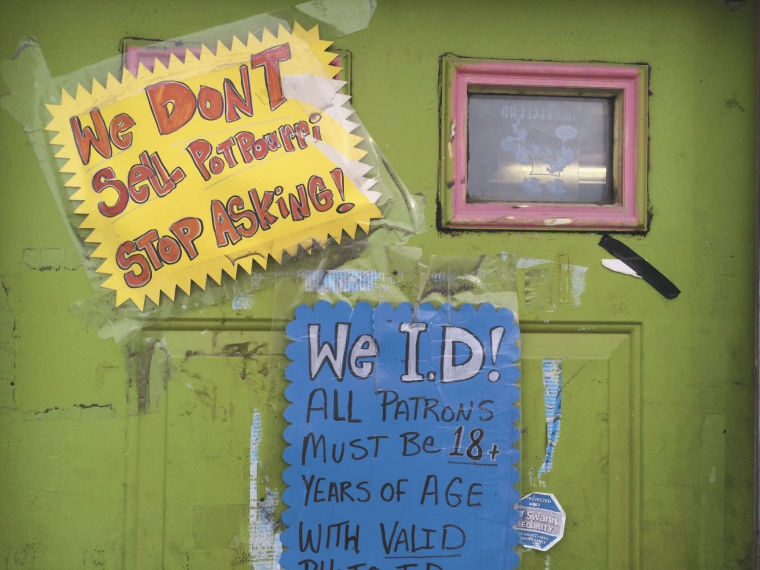 We DONT
SELL POTPOURRI
STOP ASKING!
We I.D!
ALL PATRONS
MUST Be 18+
YEARS OF AGE
WITH VALID
PHOTO ID
PROTECTED
BY
Swann
SECURITY